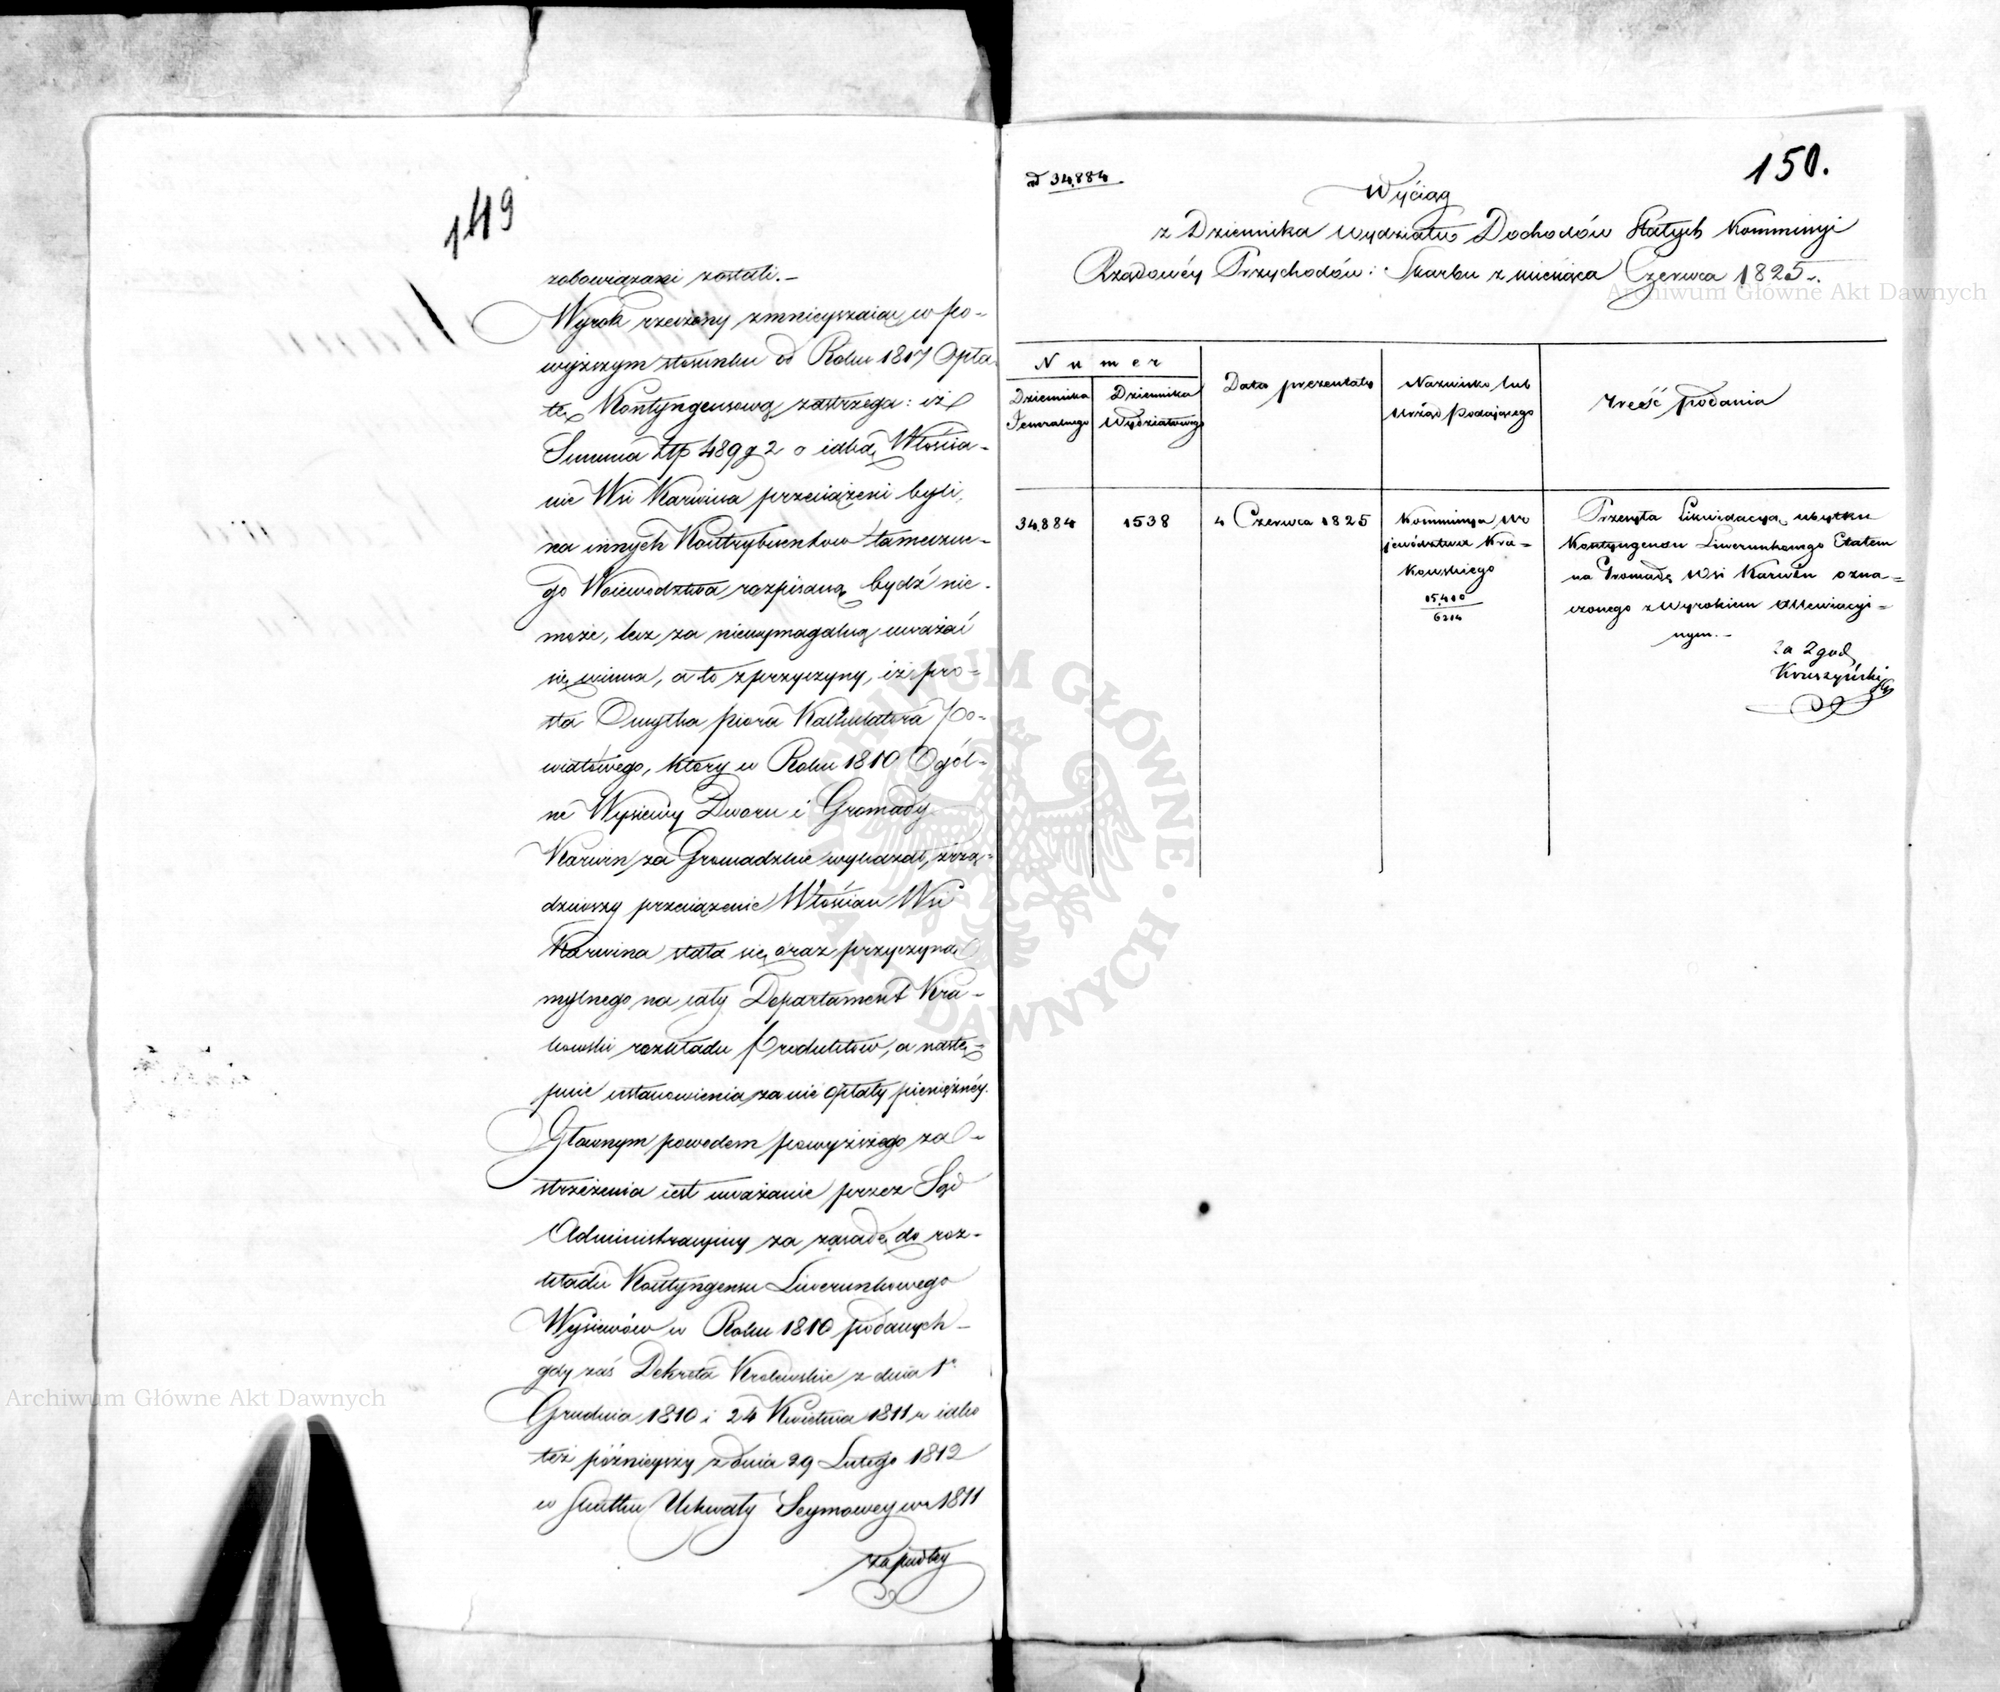 149
zobowiązani zostali.—
Wyrok rzeczony zmnieyszaiąc w po-
wyższym stosunku od Roku 1817 Opła-
tę Kontyngensową zastrzega: iż
Summa Złp 489 g 2 o iaką Włościa-
nie Wsi Karwina przeciążeni byli,
na innych Kontrybuentow tameczne-
go Woiewodztwa rozpisaną bydź nie-
może, lecz za niewymagalną uważać
się winna, a to z przyczyny, iż pro-
sta Omyłka pióra Kalkulatora Po-
wiatowego, który w Roku 1810 Ogól-
ne Wysiewy Dworu i Gromady
Karwin za Gromadzkie wykazał, zrzą-
dziwszy przeciążenie Włościan Wsi
Karwina stała się oraz przyczyną
mylnego na cały Departament Kra-
kowski rozkładu Produktów, a nastę-
pnie ustanowienia za nie opłaty pieniężnéy.
Głownym powodem powyższego za-
strzeżenia iest uważanie przez Sąd
Administracyiny za zasadę do roz-
kładu Kontyngensu Liwerunkowego
Wysiewów w Roku 1810 podanych—
gdy zaś Dekreta Krolewskie z dnia 1º
Grudnia 1810 i 24 Kwietnia 1811 r iako
też późnieyszy z dnia 29 Lutego 1812
w skutku Uchwały Seymowey w r 1811
zapadły
150.
ad 34,884
Wyciąg
z Dziennika Wydziału Dochodów Stałych Kommissyi
Rządowéy Przychodów i Skarbu z miesiąca Czerwca 1825.
Numer
Dziennika Jeneralnego
Dziennika Wydziałowego
Data prezentaty
Nazwisko lub Urząd podaiącego
Treść podania
34,884
1538
4 Czerwca 1825
Kommissya Wo
jewództwa Kra-
kowskiego
15,410
6214
Przesyła Likwidacyą ubytku
Kontyngensu Liwerunkowego Etatem
na Gromadę Wsi Karwin ozna-
czonego z Wyrokiem allewiacyi-
nym.—
Za Zgod
Kruszyński